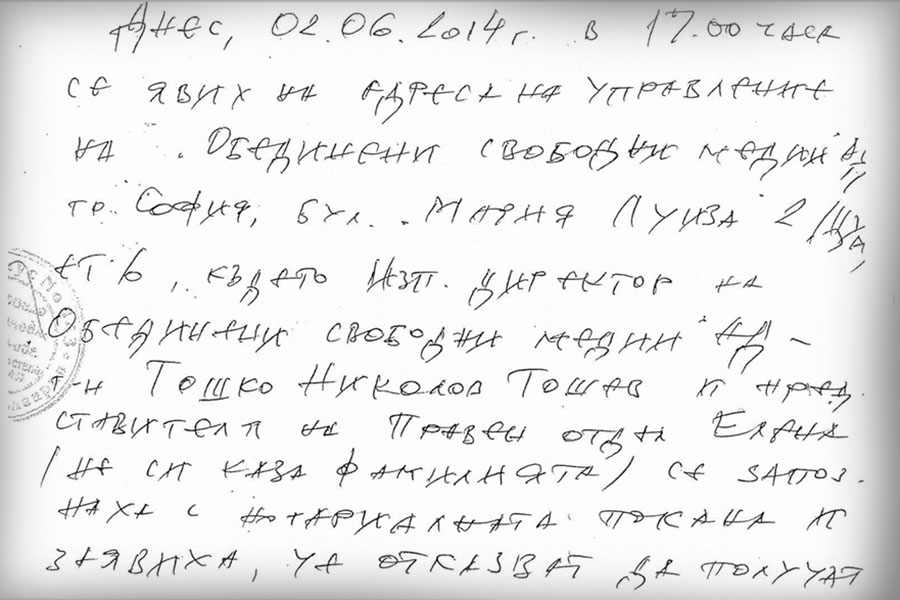 Днес, 02.06.2014г. в 17.00 часа
се явих на адреса на управление
на "Обединени свободни медии" АД,
гр. София, бул. "Мария Луиза" 2 /ЦУМ/,
ет 6, където Изп. директор на
"Обединени свободни медии" АД –
г-н Тошко Николов Тошев и пред
ставителя на Правен отдел Елена
/не си каза фамилията/ се запоз.
наха с нотариалната покана и
заявиха, че отказват да получат